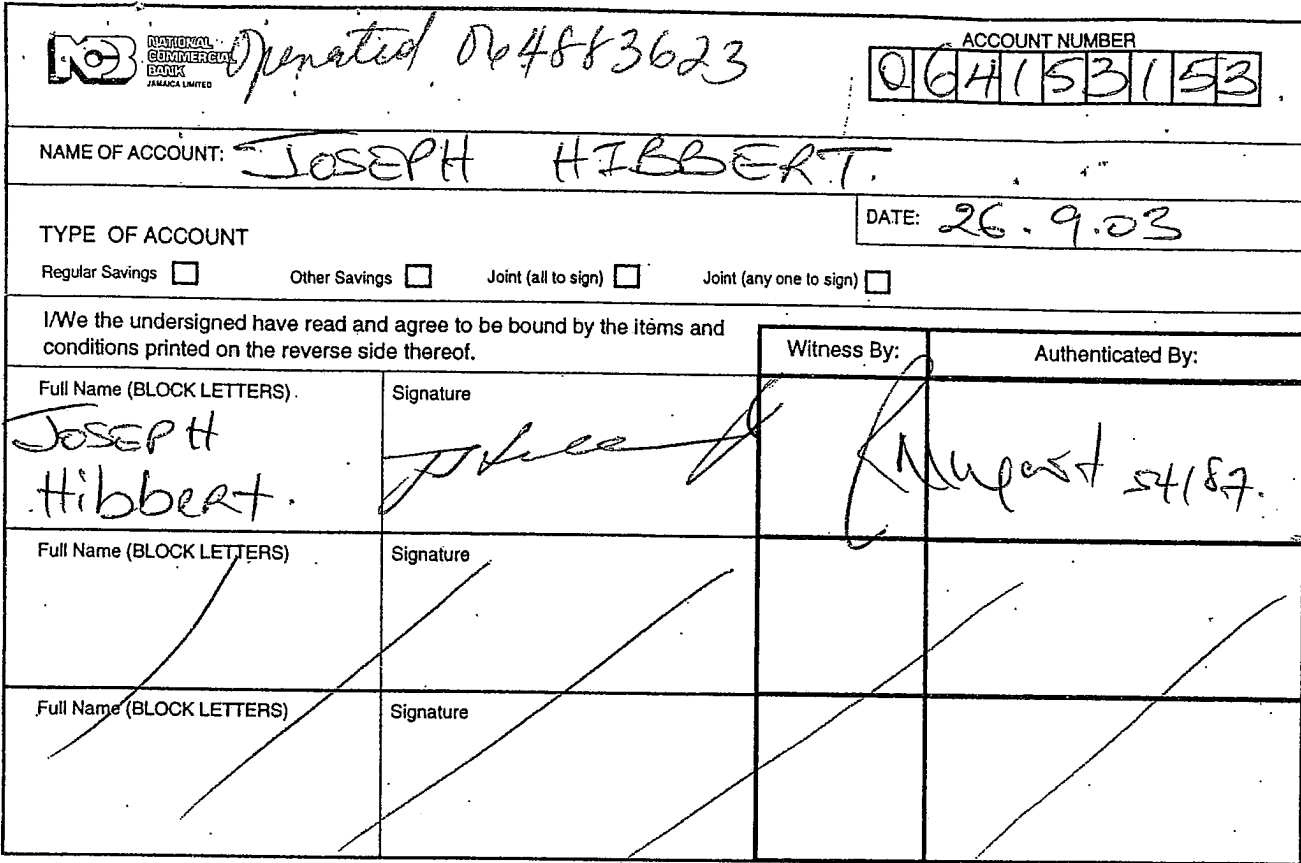 NCB NATIONAL COMMERCIAL BANK JAMAICA LIMITED
Openated 064883623
ACCOUNT NUMBER
064153153
NAME OF ACCOUNT: JOSEPH HIBBERT.
DATE: 26.9.03
TYPE OF ACCOUNT
Regular Savings Other Savings Joint (all to sign) Joint (any one to sign)
I/We the undersigned have read and agree to be bound by the items and
conditions printed on the reverse side thereof.
Witness By: Authenticated By:
Full Name (BLOCK LETTERS). Signature
JOSEPH
Hibbert.
54187.
Full Name (BLOCK LETTERS) Signature
Full Name (BLOCK LETTERS) Signature